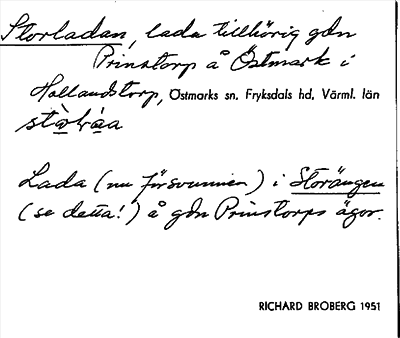 Storladan, lada tillhörig gdn
Prinstorp å Östmark i
Hollandstorp, Östmarks sn. Fryksdals hd. Värml. län
Lada (nu försvunnen) i Storängen
(se detta!) å gdn Prinstorps ägor.
RICHARD BROBERG 1951